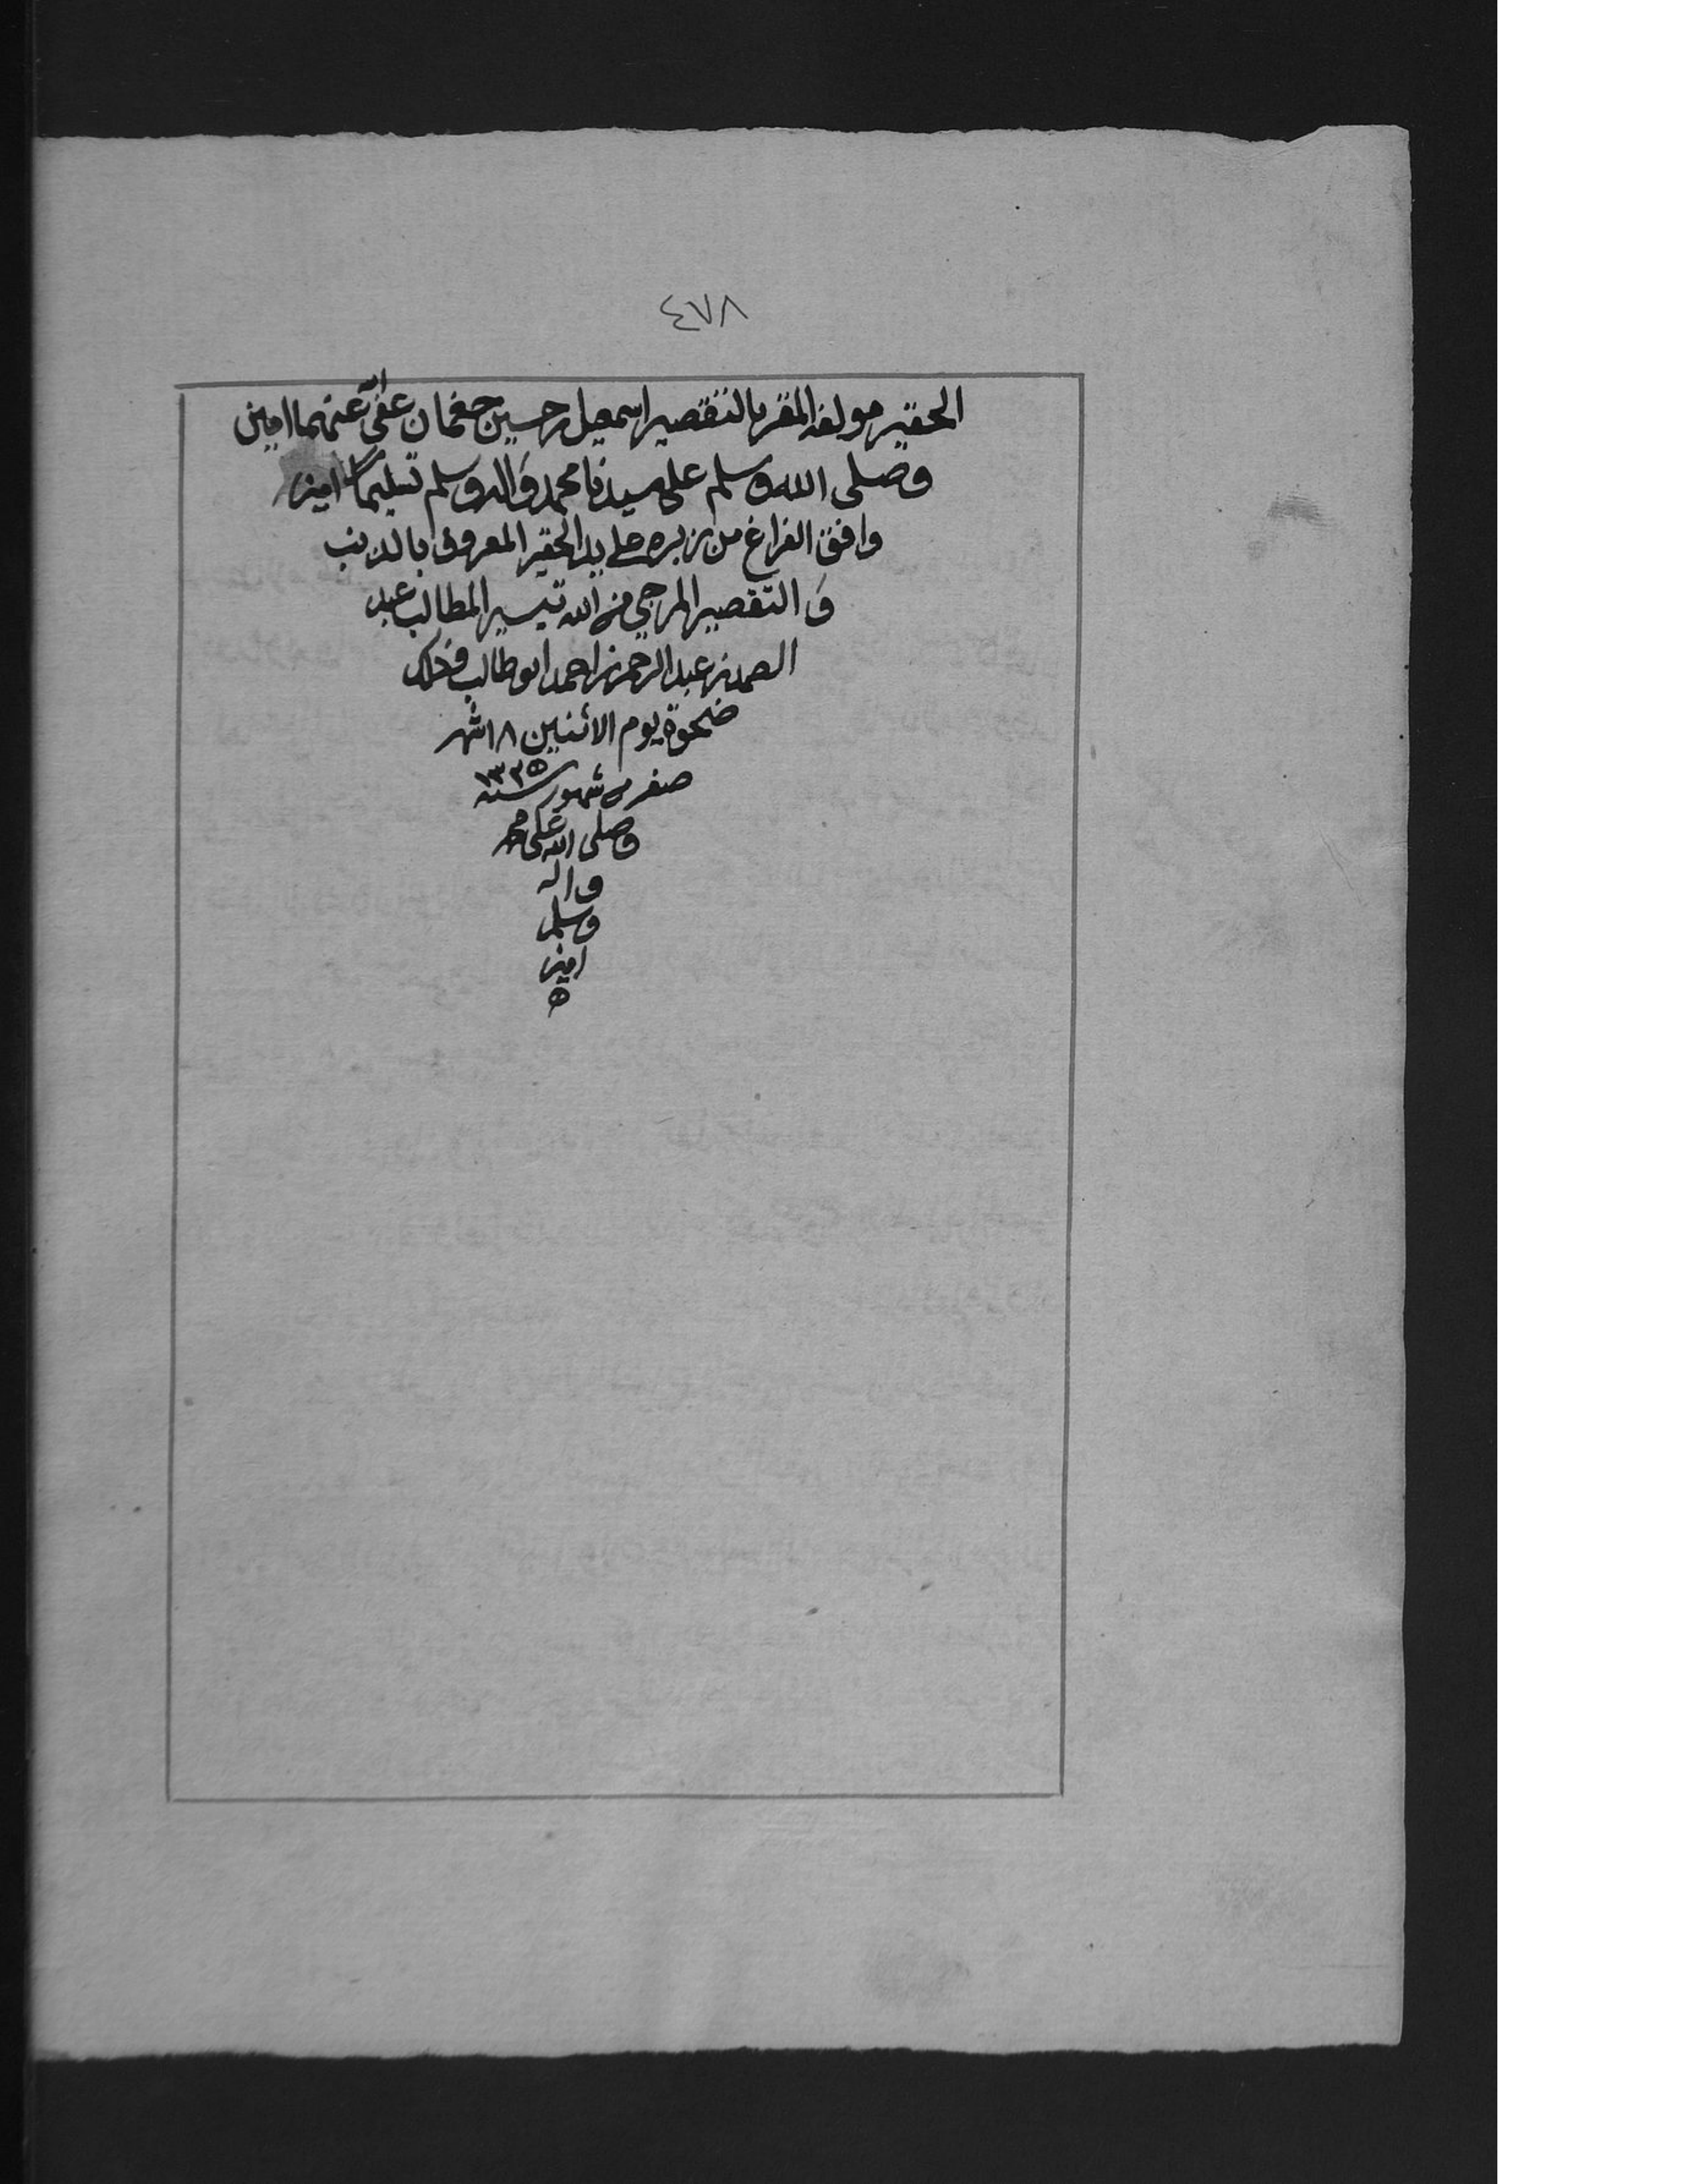 ٤٧٨
الحقير مولفه المقر بالتقصير اسمعيل بن حسين جغمان عفى الله عنهما امين
وصلى الله وسلم على سيدنا محمد واله وسلم تسليما امين
وافق الفراغ من زبره على يد الحقير المعروف بالذنب
و التقصير المرجي من الله تيسير المطالب عبد
الصمد بن عبد الرحمن بن احمد ابو طالب وذلك
ضحوة يوم الاثنين ١٨ شهر
صفر من شهور سنه ١٣٢٥
وصلى الله على محمد
واله
وسلم
امين